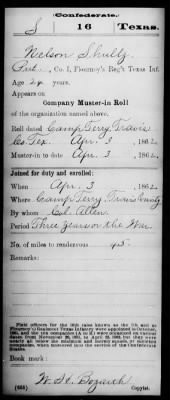 Confederate.
S 16 Texas.
Nelson Shultz
Pvt., Co. I, Flournoy's Reg't Texas Inf.
Age 24 years.
Appears on
Company Muster-in Roll
of the organization named above.
Roll dated Camp Terry, Travis
Co. Tex. Apr. 3, 1862.
Muster-in to date Apr. 3, 1862.
Joined for duty and enrolled:
When Apr. 3, 1862.
Where Camp Terry, Travis County
By whom Col. Allen
Period Three years or the War.
No. of miles to rendezvous 45.
Remarks:
Book mark:
W. H. Bozarth
Copyist.